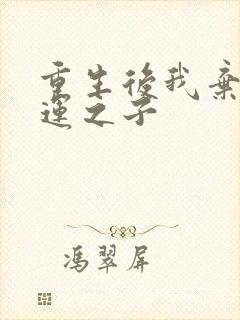 重生後我棄
運之子
馮翠屏